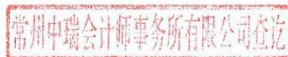 常州中瑞会计师事务所有限公司查讫